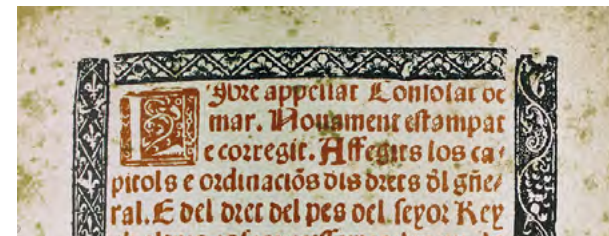 Libre appellat Consolat de
mar. Nouament estampat
e corregit. Affegits los ca-
pitols e ordinaciõs dls drets dl gñe-
ral. E del dret del pes del señor Rey